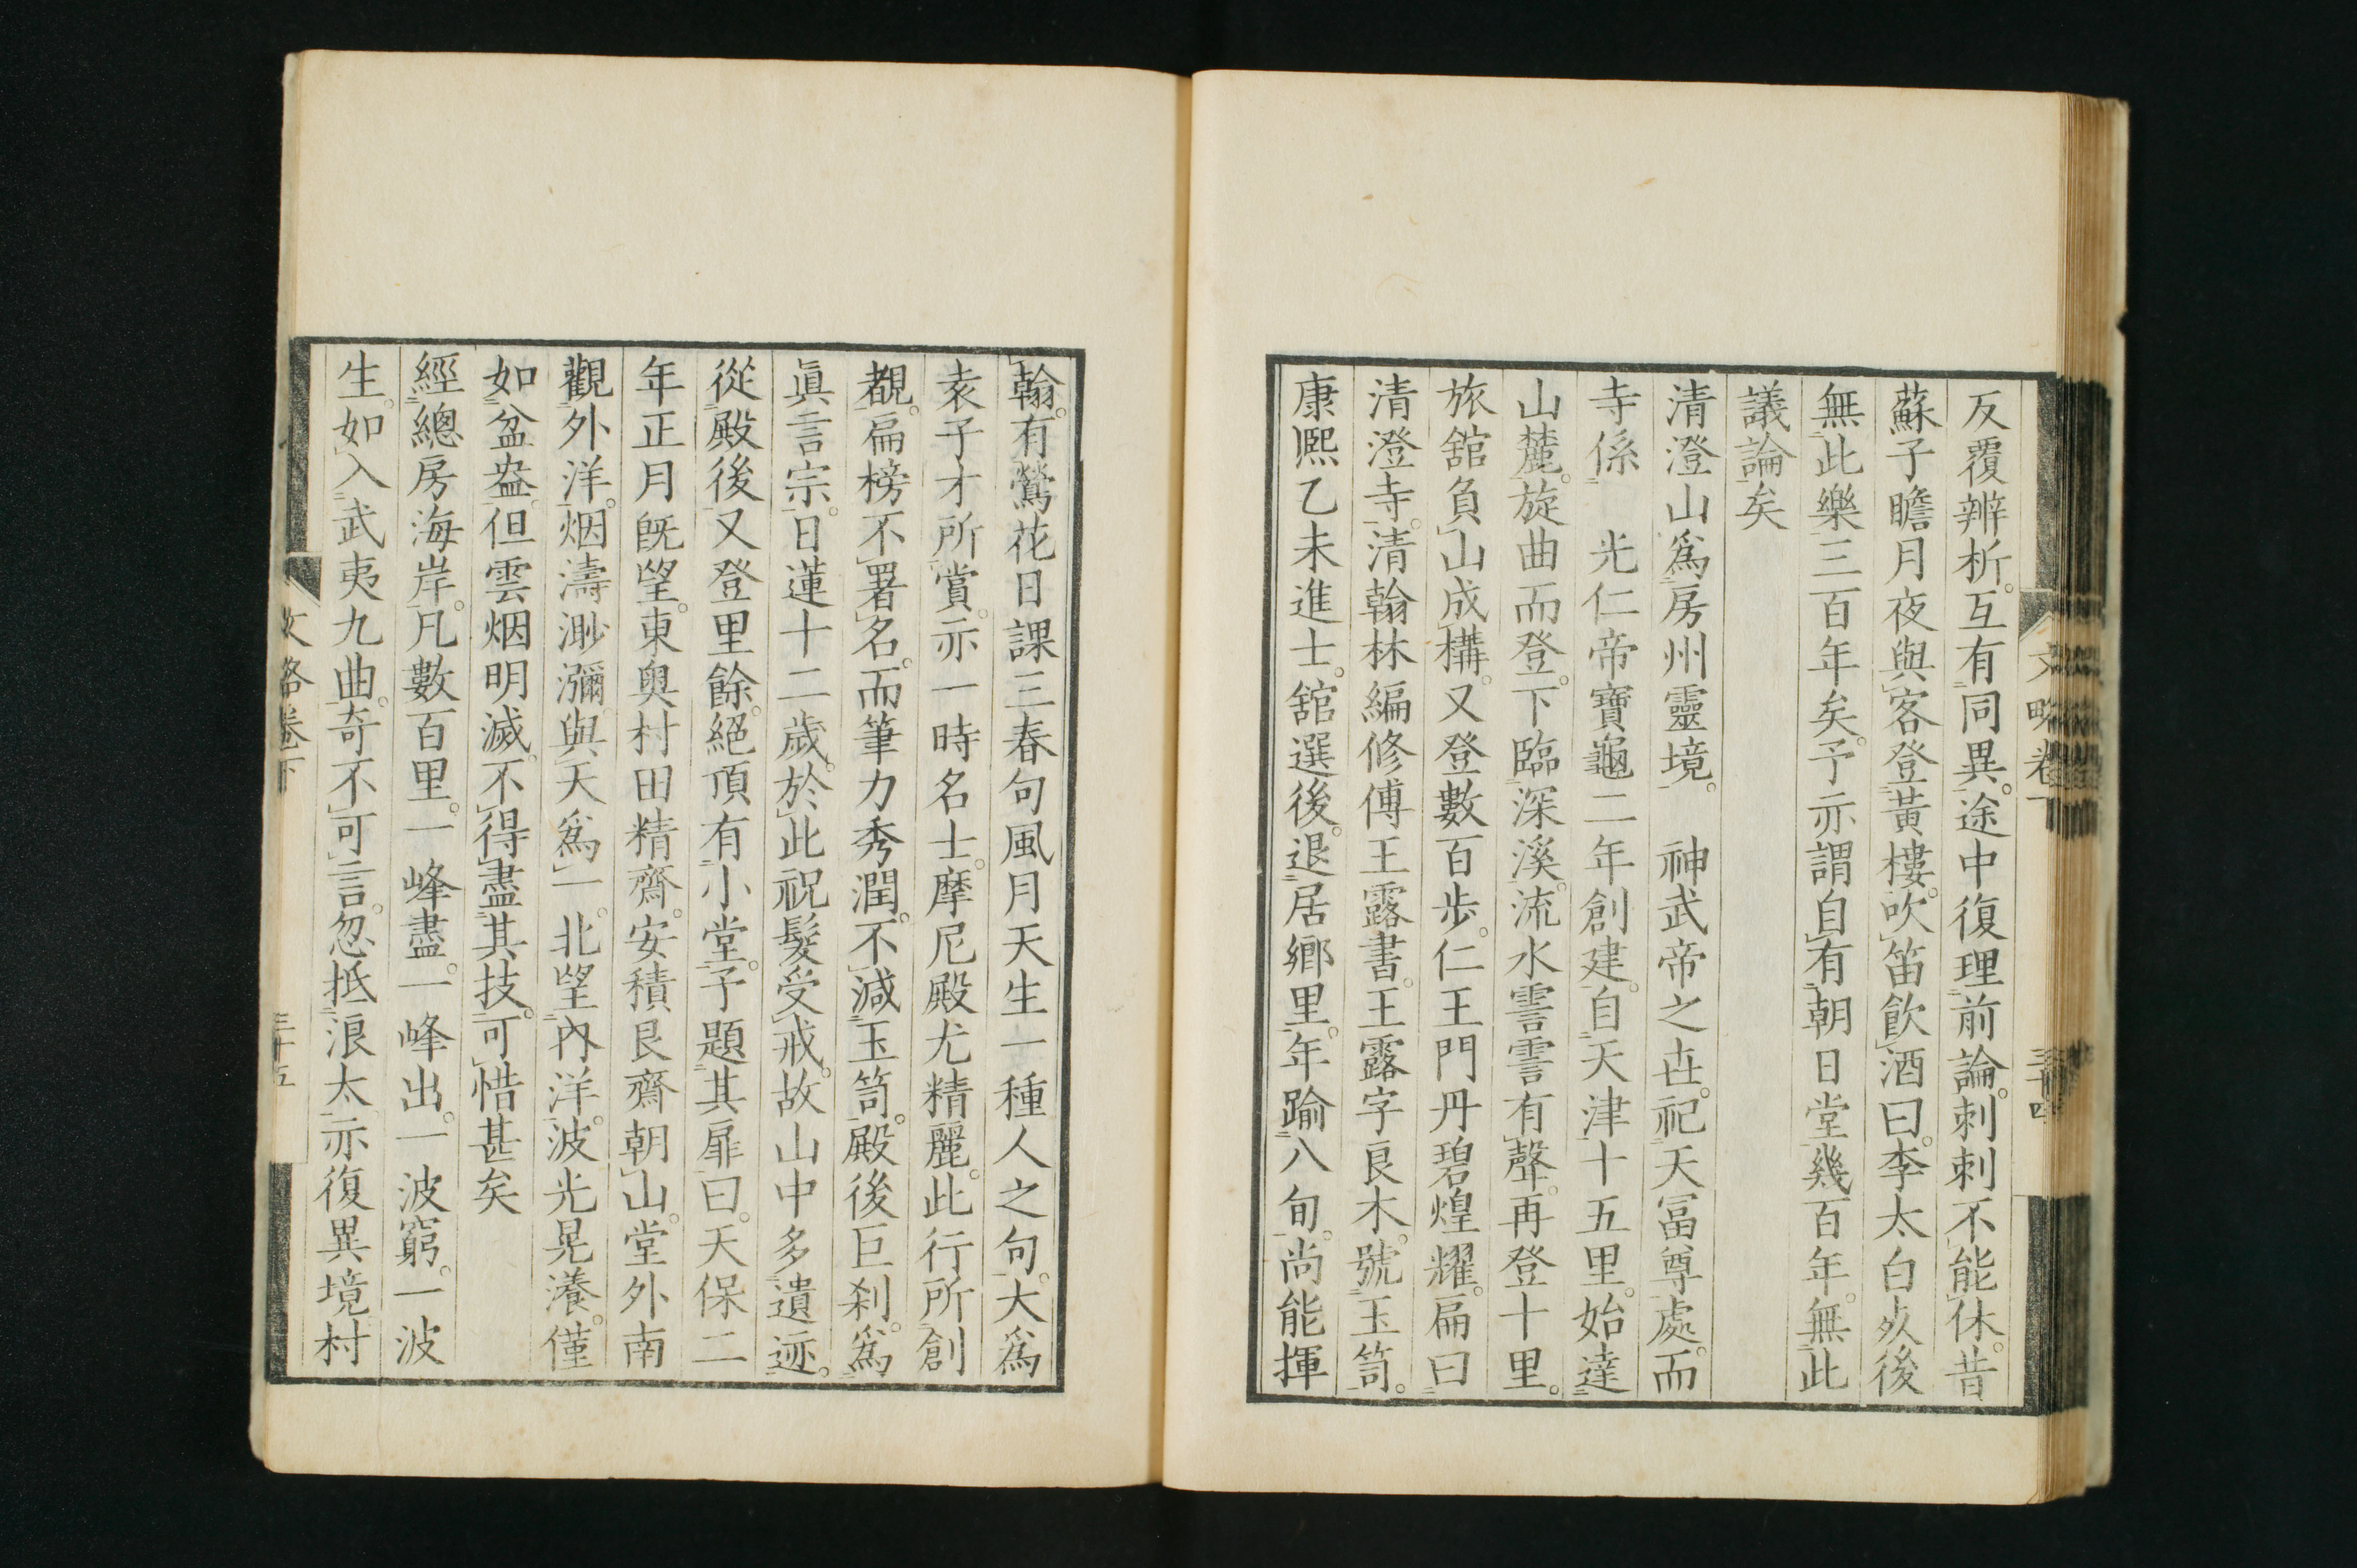 文略卷下
三十四
反覆辨析。互有同異。途中復理前論。刺刺不能休。昔
蘇子瞻月夜與客登黃樓。吹笛飮酒曰。李太白死後
無此樂三百年矣。予亦謂自有朝日堂幾百年。無此
議論矣
淸澄山爲房州靈境。　神武帝之世。祀天富尊處。而
寺係　光仁帝寶龜二年創建。自天津十五里。始達
山麓。旋曲而登。下臨深溪。流水霅霅有聲。再登十里。
旅舘負山成構。又登數百步。仁王門丹碧煌耀。扁曰
淸澄寺。淸翰林編修傅王露書。王露字良木。號玉笥。
康熙乙未進士。舘選後。退居鄉里。年踰八旬。尚能揮
翰。有鶯花日課三春句風月天生一種人之句。大爲
袁子才所賞。亦一時名士。摩尼殿尤精麗。此行所創
覩。扁榜不署名。而筆力秀潤。不減玉笥。殿後巨刹。爲
眞言宗。日蓮十二歲。於此祝髮受戒。故山中多遺迹。
從殿後又登里餘。絕頂有小堂。予題其扉曰。天保二
年正月旣望。東奧村田精齋。安積艮齋朝山。堂外南
觀外洋。烟濤渺瀰。與天爲一。北望內洋。波光晃瀁。僅
如盆盎。但雲烟明滅。不得盡其技。可惜甚矣
經總房海岸。凡數百里。一峰盡。一峰出。一波窮。一波
生。如入武夷九曲。奇不可言。忽抵浪太。亦復異境。村
文略卷下
三十五